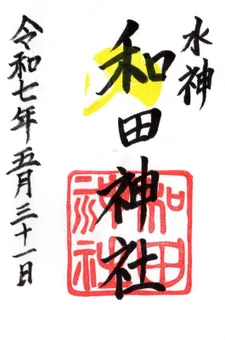 水神
和田神社
令和七年五月三十一日